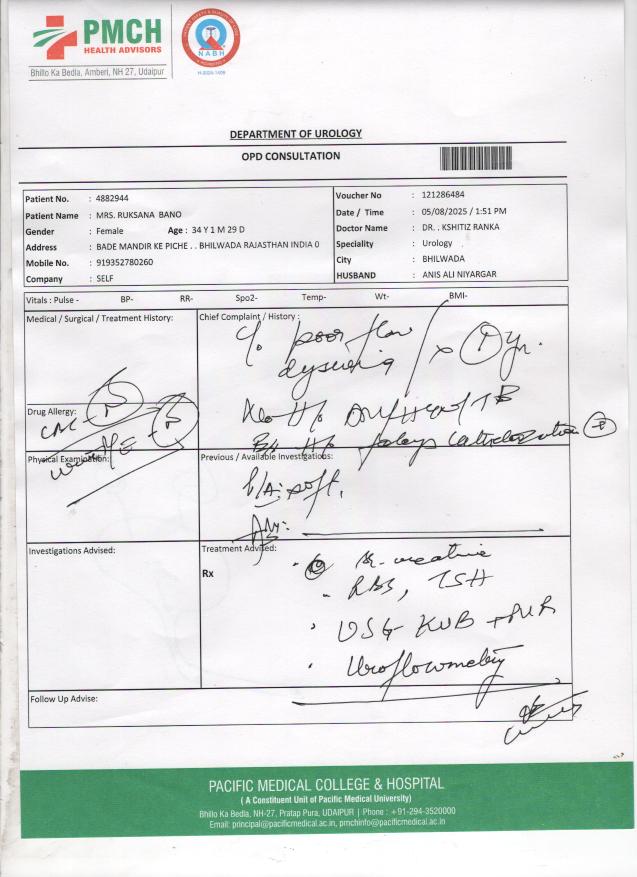 PMCH
HEALTH ADVISORS
Bhillo Ka Bedla, Amberi, NH 27, Udaipur
NABH
H-2024-1409
DEPARTMENT OF UROLOGY
OPD CONSULTATION
Patient No. : 4882944
Patient Name : MRS. RUKSANA BANO
Gender : Female Age : 34 Y 1 M 29 D
Address : BADE MANDIR KE PICHE . . BHILWADA RAJASTHAN INDIA 0
Mobile No. : 919352780260
Company : SELF
Voucher No : 121286484
Date / Time : 05/08/2025 / 1:51 PM
Doctor Name : DR. . KSHITIZ RANKA
Speciality : Urology
City : BHILWADA
HUSBAND : ANIS ALI NIYARGAR
Vitals : Pulse - BP- RR- Spo2- Temp- Wt- BMI-
Medical / Surgical / Treatment History:
Chief Complaint / History :
C/o poor flow
dysuria x 1 yr.
No H/o DM/ /TB
H/o foleys catheterization
Drug Allergy:
CBC
Urine
Physical Examination:
Previous / Available Investigations:
P/A: soft.
Adv:
Investigations Advised:
Treatment Advised:
Rx
Sr. creatinine
RBS, TSH
USG KUB + PVR
Uroflowmetry
Follow Up Advise:
PACIFIC MEDICAL COLLEGE & HOSPITAL
( A Constituent Unit of Pacific Medical University)
Bhillo Ka Bedla, NH-27, Pratap Pura, UDAIPUR | Phone : +91-294-3520000
Email: principal@pacificmedical.ac.in, pmchinfo@pacificmedical.ac.in